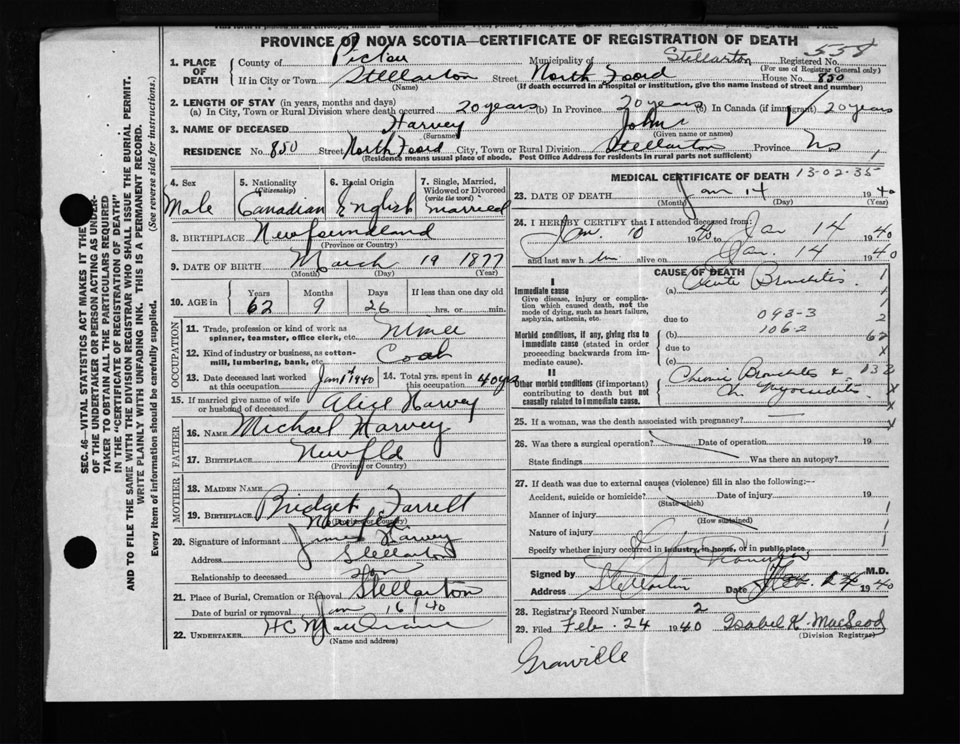 PROVINCE OF NOVA SCOTIA—CERTIFICATE OF REGISTRATION OF DEATH
1. PLACE OF DEATH County of Pictou Municipality of Stellarton Registered No. 558
(For use of Registrar General only)
If in City or Town Stellarton Street North Foord House No. 850
(Name) (If death occurred in a hospital or institution, give the name instead of street and number)
2. LENGTH OF STAY (in years, months and days)
(a) In City, Town or Rural Division where death occurred 20 years (b) In Province 20 years (c) In Canada (if immigrant) 20 years
3. NAME OF DECEASED Harvey John
(Surname) (Given name or names)
RESIDENCE No. 850 Street North Foord City, Town or Rural Division Stellarton Province NS
(Residence means usual place of abode. Post Office Address for residents in rural parts not sufficient)
4. Sex Male
5. Nationality (Citizenship) Canadian
6. Racial Origin English
7. Single, Married, Widowed or Divorced (write the word) married
8. BIRTHPLACE Newfoundland
(Province or Country)
9. DATE OF BIRTH March 19 1877
(Month) (Day) (Year)
10. AGE in Years Months Days If less than one day old
62 9 26 hrs. or min.
OCCUPATION
11. Trade, profession or kind of work as spinner, teamster, office clerk, etc. Miner
12. Kind of industry or business, as cotton-mill, lumbering, bank, etc. Coal
13. Date deceased last worked at this occupation Jan 1st 1940
14. Total yrs. spent in this occupation 40 yrs
15. If married give name of wife or husband of deceased Alice Harvey
FATHER
16. NAME Michael Harvey
17. BIRTHPLACE Newfld
(Province or Country)
MOTHER
18. MAIDEN NAME Bridget Farrell
19. BIRTHPLACE Newfld
(Province or Country)
20. Signature of informant James Harvey
Address Stellarton
Relationship to deceased Son
21. Place of Burial, Cremation or Removal Stellarton
Date of burial or removal Jan 16/40
22. UNDERTAKER HC
(Name and address)
MEDICAL CERTIFICATE OF DEATH 13-02-35
23. DATE OF DEATH Jan 14 1940
(Month) (Day) (Year)
24. I HEREBY CERTIFY that I attended deceased from:
Jan. 10 1940 to Jan 14 1940
and last saw him alive on Jan. 14 1940
CAUSE OF DEATH
I
Immediate cause (a) Acute Bronchitis
Give disease, injury or complication which caused death, not the mode of dying, such as heart failure, asphyxia, asthenia, etc.
due to 093-3
Morbid conditions, if any, giving rise to immediate cause (stated in order proceeding backwards from immediate cause). (b) 106-2
due to
(c)
II
Other morbid conditions (if important) contributing to death but not causally related to immediate cause. Chronic Bronchitis & Ch. Myocarditis
1
1
2
62
x
x
25. If a woman, was the death associated with pregnancy?
26. Was there a surgical operation? Date of operation 19
State findings Was there an autopsy?
27. If death was due to external causes (violence) fill in also the following:—
Accident, suicide or homicide? Date of injury 19
(State which)
Manner of injury
(How sustained)
Nature of injury
Specify whether injury occurred in industry, in home, or in public place
Signed by M.D.
Address Stellarton Date Feb. 24 1940
28. Registrar's Record Number 2
29. Filed Feb. 24 1940 Isabel K. MacLeod
(Division Registrar)
Granville
SEC. 46—VITAL STATISTICS ACT MAKES IT THE DUTY OF THE UNDERTAKER OR PERSON ACTING AS UNDERTAKER TO OBTAIN ALL THE PARTICULARS REQUIRED IN THE "CERTIFICATE OF REGISTRATION OF DEATH"
AND TO FILE THE SAME WITH THE DIVISION REGISTRAR WHO SHALL ISSUE THE BURIAL PERMIT.
WRITE PLAINLY WITH UNFADING INK. THIS IS A PERMANENT RECORD.
Every item of information should be carefully supplied. (See reverse side for instructions.)